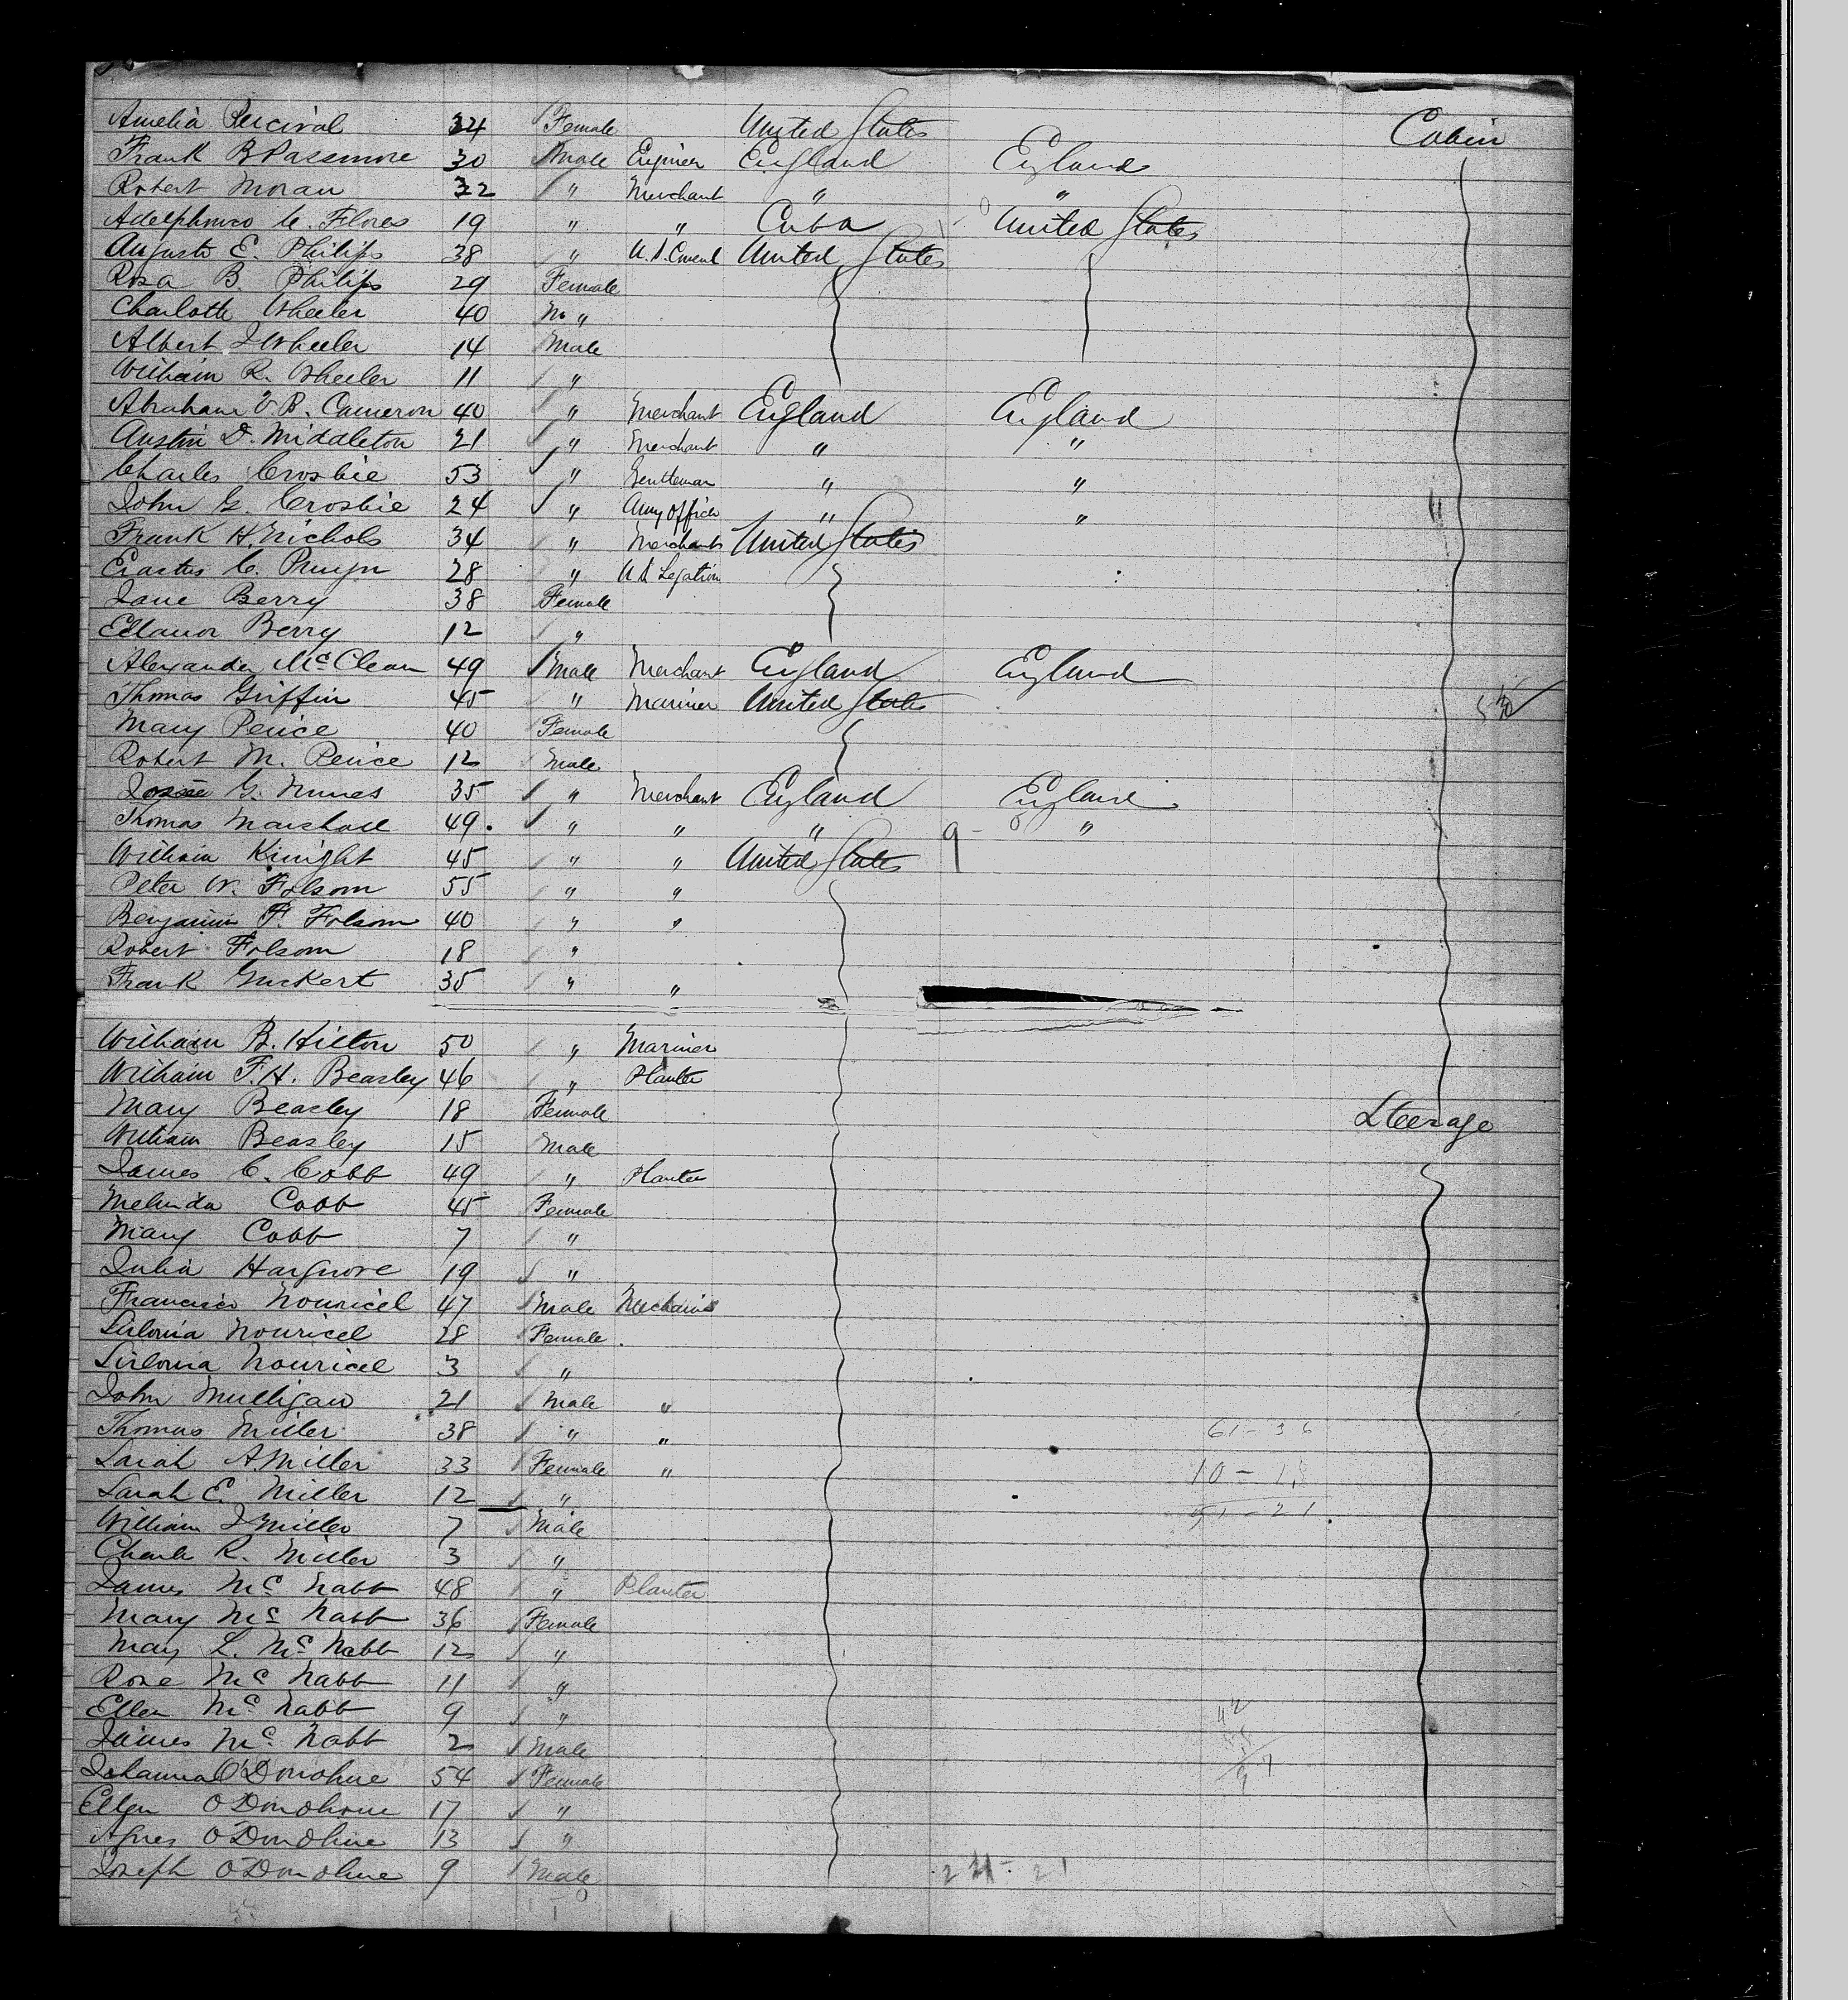 Amelia Percival 34 Female United States Cabin
Frank B Passmore 30 Male Enginer England England
Robert Moran 32 " Merchant " "
Adelphonso C. Flores 19 " " Cuba United States
Augusto E. Philips 38 " U.S. Consul United States
Rosa B. Philips 29 Female
Charlotte Wheeler 40 "
Albert J Wheeler 14 Male
William R. Wheeler 11 "
Abraham V. B. Cameron 40 " Merchant England England
Austin D. Middleton 21 " Merchant " "
Charles Crosbie 53 " Gentleman " "
John G. Crosbie 24 " Army Officer " "
Frank H. Nichols 34 " Merchant United States
Erastus C. Pruyn 28 " U S Legation
Jane Berry 38 Female
Ellanor Berry 12 "
Alexander McClean 49 Male Merchant England England
Thomas Griffin 45 " Mariner United States
Mary Peirce 40 Female
Robert M. Peirce 12 Male
G. Nunes 35 " Merchant England England
Thomas Marshall 49. " " " 9 - "
William Knight 45 " " United States
Peter W. Folsom 55 " "
Benjamin F. Folsom 40 " "
Robert Folsom 18 "
Frank Guckert 35 " "
William B. Hilton 50 " Mariner
William F. H. Beasley 46 " Planter
Mary Beasley 18 Female Steerage
William Beasley 15 Male
James C. Cobb 49 " Planter
Melinda Cobb 45 Female
Mary Cobb 7 "
Julia Hargrove 19 "
Francisco Nouricel 47 Male Mechanic
Silonia Nouricel 28 Female
Nouricel 3 "
John Mulligan 21 Male "
Thomas Miller 38 " " 61 - 36
Sarah A. Miller 33 Female " 10 - 18
Sarah E. Miller 12 "
William J Miller 7 Male 51 - 21
Charls R. Miller 3 "
James McNabb 48 " Planter
Mary McNabb 36 Female
Mary L. McNabb 12 "
Rose McNabb 11 "
Ellen McNabb 9 " 42
James McNabb 2 Male 55
Johanna O'Donohue 54 Female 97
Ellen O'Donohue 17 "
Agnes O'Donohue 13 "
Joseph O'Donohue 9 Male 21